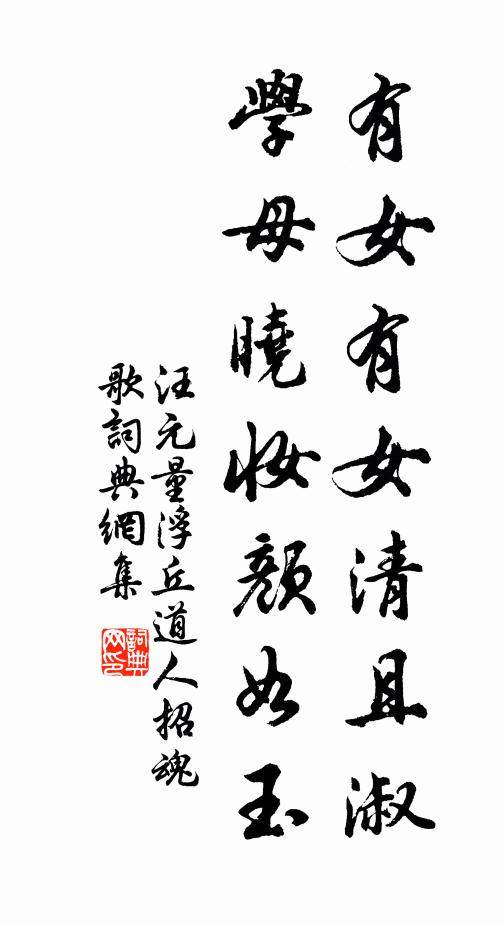 有女有女清且淑
學母曉妝顏如玉
汪元量浮丘道人招魂
歌詞典網集
詞典網印